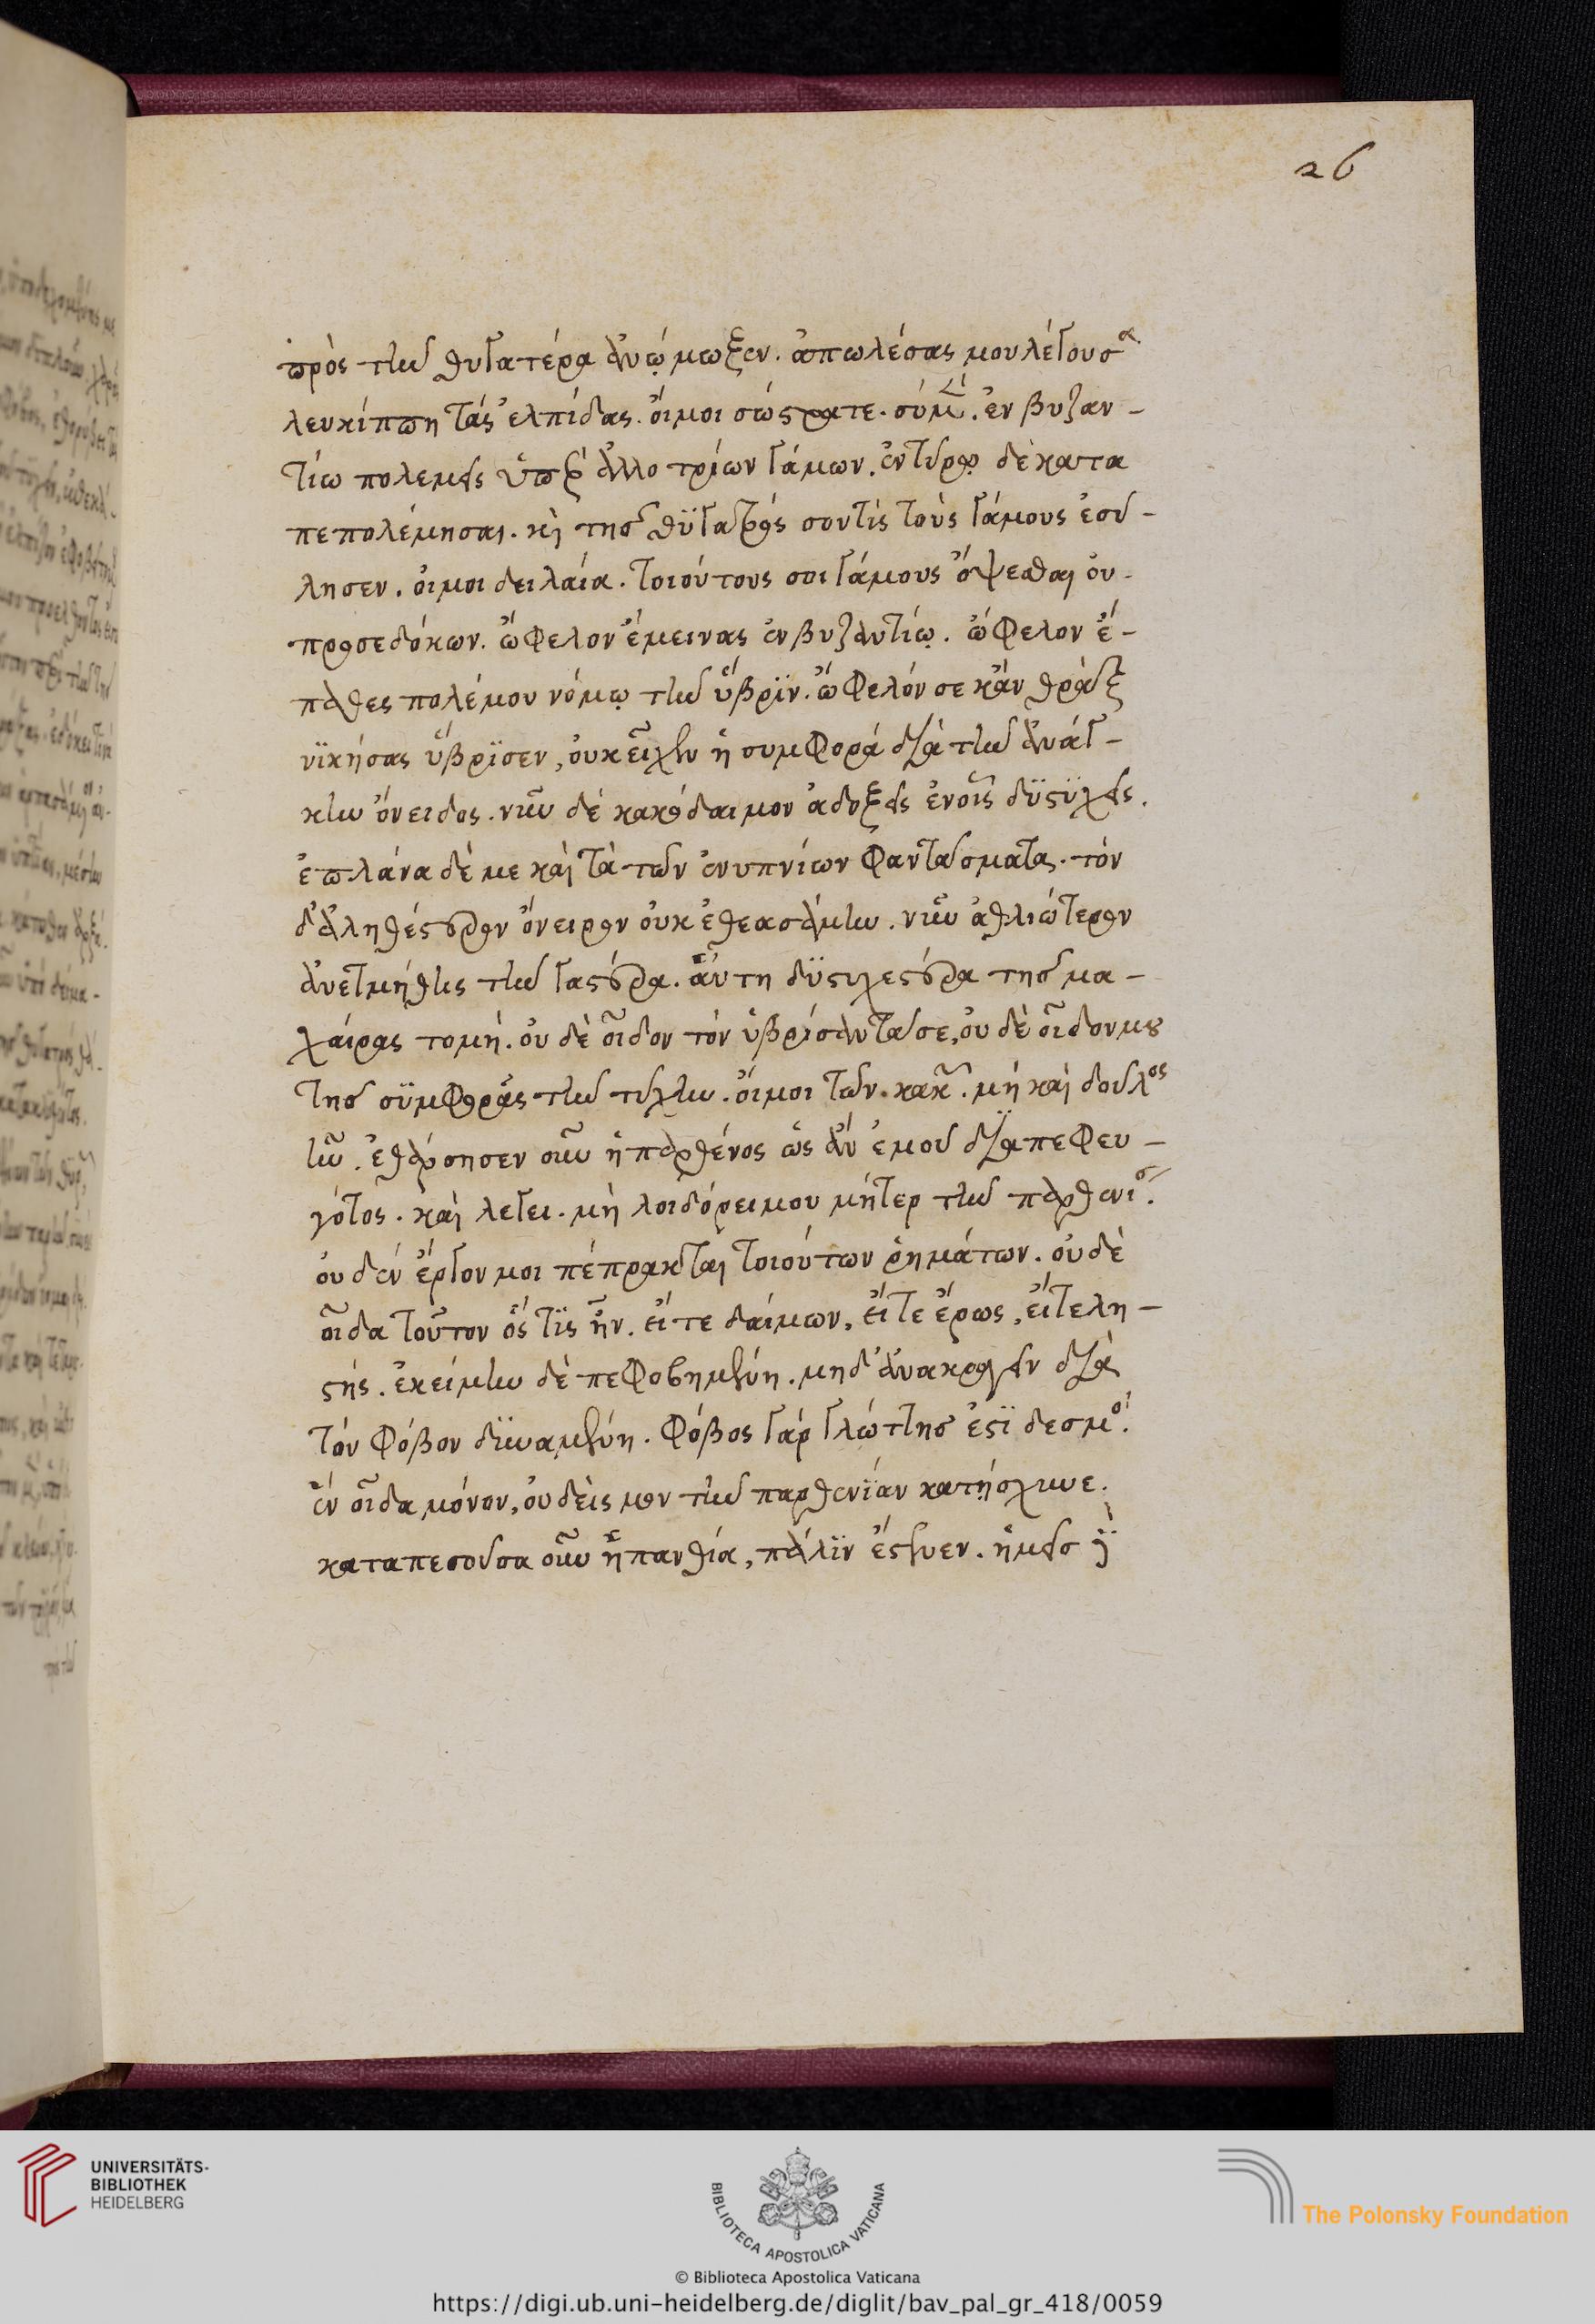 26
πρὸς τὴν θυγατέρα ἀνῴμωξεν. ἀπωλέσας μου λέγουσα
λευκίππη τὰς ἐλπίδας. οἴμοι σώστρατε. σὺ μὲν. ἐν βυζαν-
τίω πολεμεῖς ὑπὲρ ἀλλοτρίων γάμων. ἐν τύρῳ δὲ κατα
πεπολέμησαι. κὶ τῆς θϋγατρός σου τίς τοὺς γάμους ἐσύ-
λησεν. οἴμοι δειλαία. τοιούτους σοι γάμους ὄψεσθαι οὐ-
προσεδόκων. ὤφελον ἔμεινας ἐν βυζαντίῳ. ὤφελον ἔ-
παθες πολέμου νόμῳ τὴν ὕβρϊν. ὤφελόν σε κἂν θρᾲξ
νϊκήσας ὕβρϊσεν, οὐκ εἶχεν ἡ συμφορά διὰ τὴν ἀνάγ-
κην ὄνειδος. νῦν δέ κακόδαιμον ἀδοξεῖς ἐν οἷς δϋστϋχεῖς.
ἐπλάνα δέ με καὶ τὰ τῶν ἐνυπνίων φαντάσματα. τὸν
δ' ἀληθέστερον ὄνειρον οὐκ ἐθεασάμην. νῦν ἀθλιώτερον
ἀνετμήθης τὴν γαστέρα. αὕτη δϋστυχεστέρα τῆς μα-
χαίρας τομή. οὐ δὲ οἶδον τὸν ὑβρίσαντά σε, οὐ δὲ οἶδον μου
τῆς σϋμφορᾶς τὴν τύχην. οἴμοι τῶν κακῶν. μὴ καὶ δοῦλος
ἦν. ἐθάρσησεν οὖν ἡ παρθένος ὡς ἂν ἐμοῦ διαπεφευ-
γότος. καὶ λέγει. μὴ λοιδόρει μου μῆτερ τὴν παρθενίαν.
οὐδὲν ἔργον μοι πέπρακται τοιούτων ῥημάτων. οὐ δὲ
οἶδα τοῦτον ὅς τϊς ἦν. εἴ τε δαίμων, εἴ τε ἔρως, εἴ τε λη-
στής. ἐκείμην δὲ πεφοβημένη. μηδ' ἀνακραγεῖν διὰ
τὸν φόβον δϋναμένη. φόβος γὰρ γλώττης ἐστϊ δεσμός.
ἓν οἶδα μόνον, οὐδείς μου τὴν παρθενϊαν κατῄσχυνε.
καταπεσοῦσα οὖν ἡ πανθία, πάλϊν ἔστενεν. ἡμεῖς δὲ
UNIVERSITÄTS-
BIBLIOTHEK
HEIDELBERG
BIBLIOTECA APOSTOLICA VATICANA
The Polonsky Foundation
© Biblioteca Apostolica Vaticana
https://digi.ub.uni-heidelberg.de/diglit/bav_pal_gr_418/0059